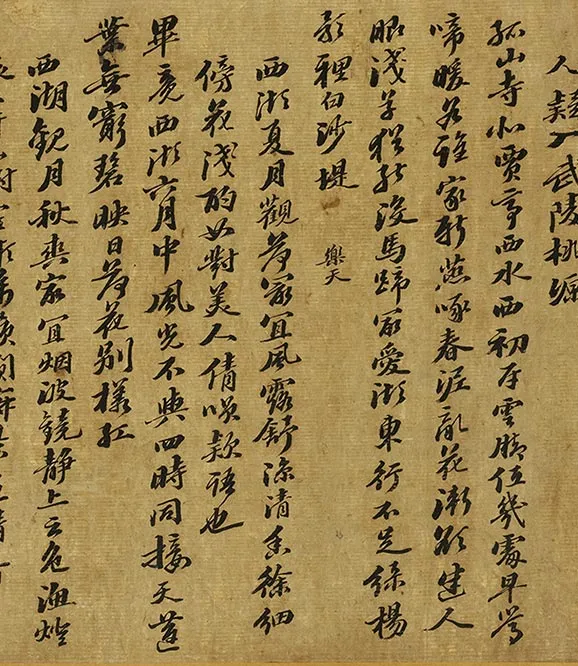 人疑入武陵桃
孤山寺北賈亭西水面初平雲腳低幾處早鶯
啼暖谷誰家新燕啄春泥亂花漸欲迷人
眼淺草猶能沒馬蹄最愛湖東行不足綠楊
影裡白沙堤
樂天
西湖夏月觀荷最宜風露舒涼清香徐細
傍花淺酌如對美人倩笑款語也
畢竟西湖六月中風光不與四時同接天蓮
葉無窮碧映日荷花別樣紅
西湖觀月秋爽最宜烟波鏡靜上下一色漁燈